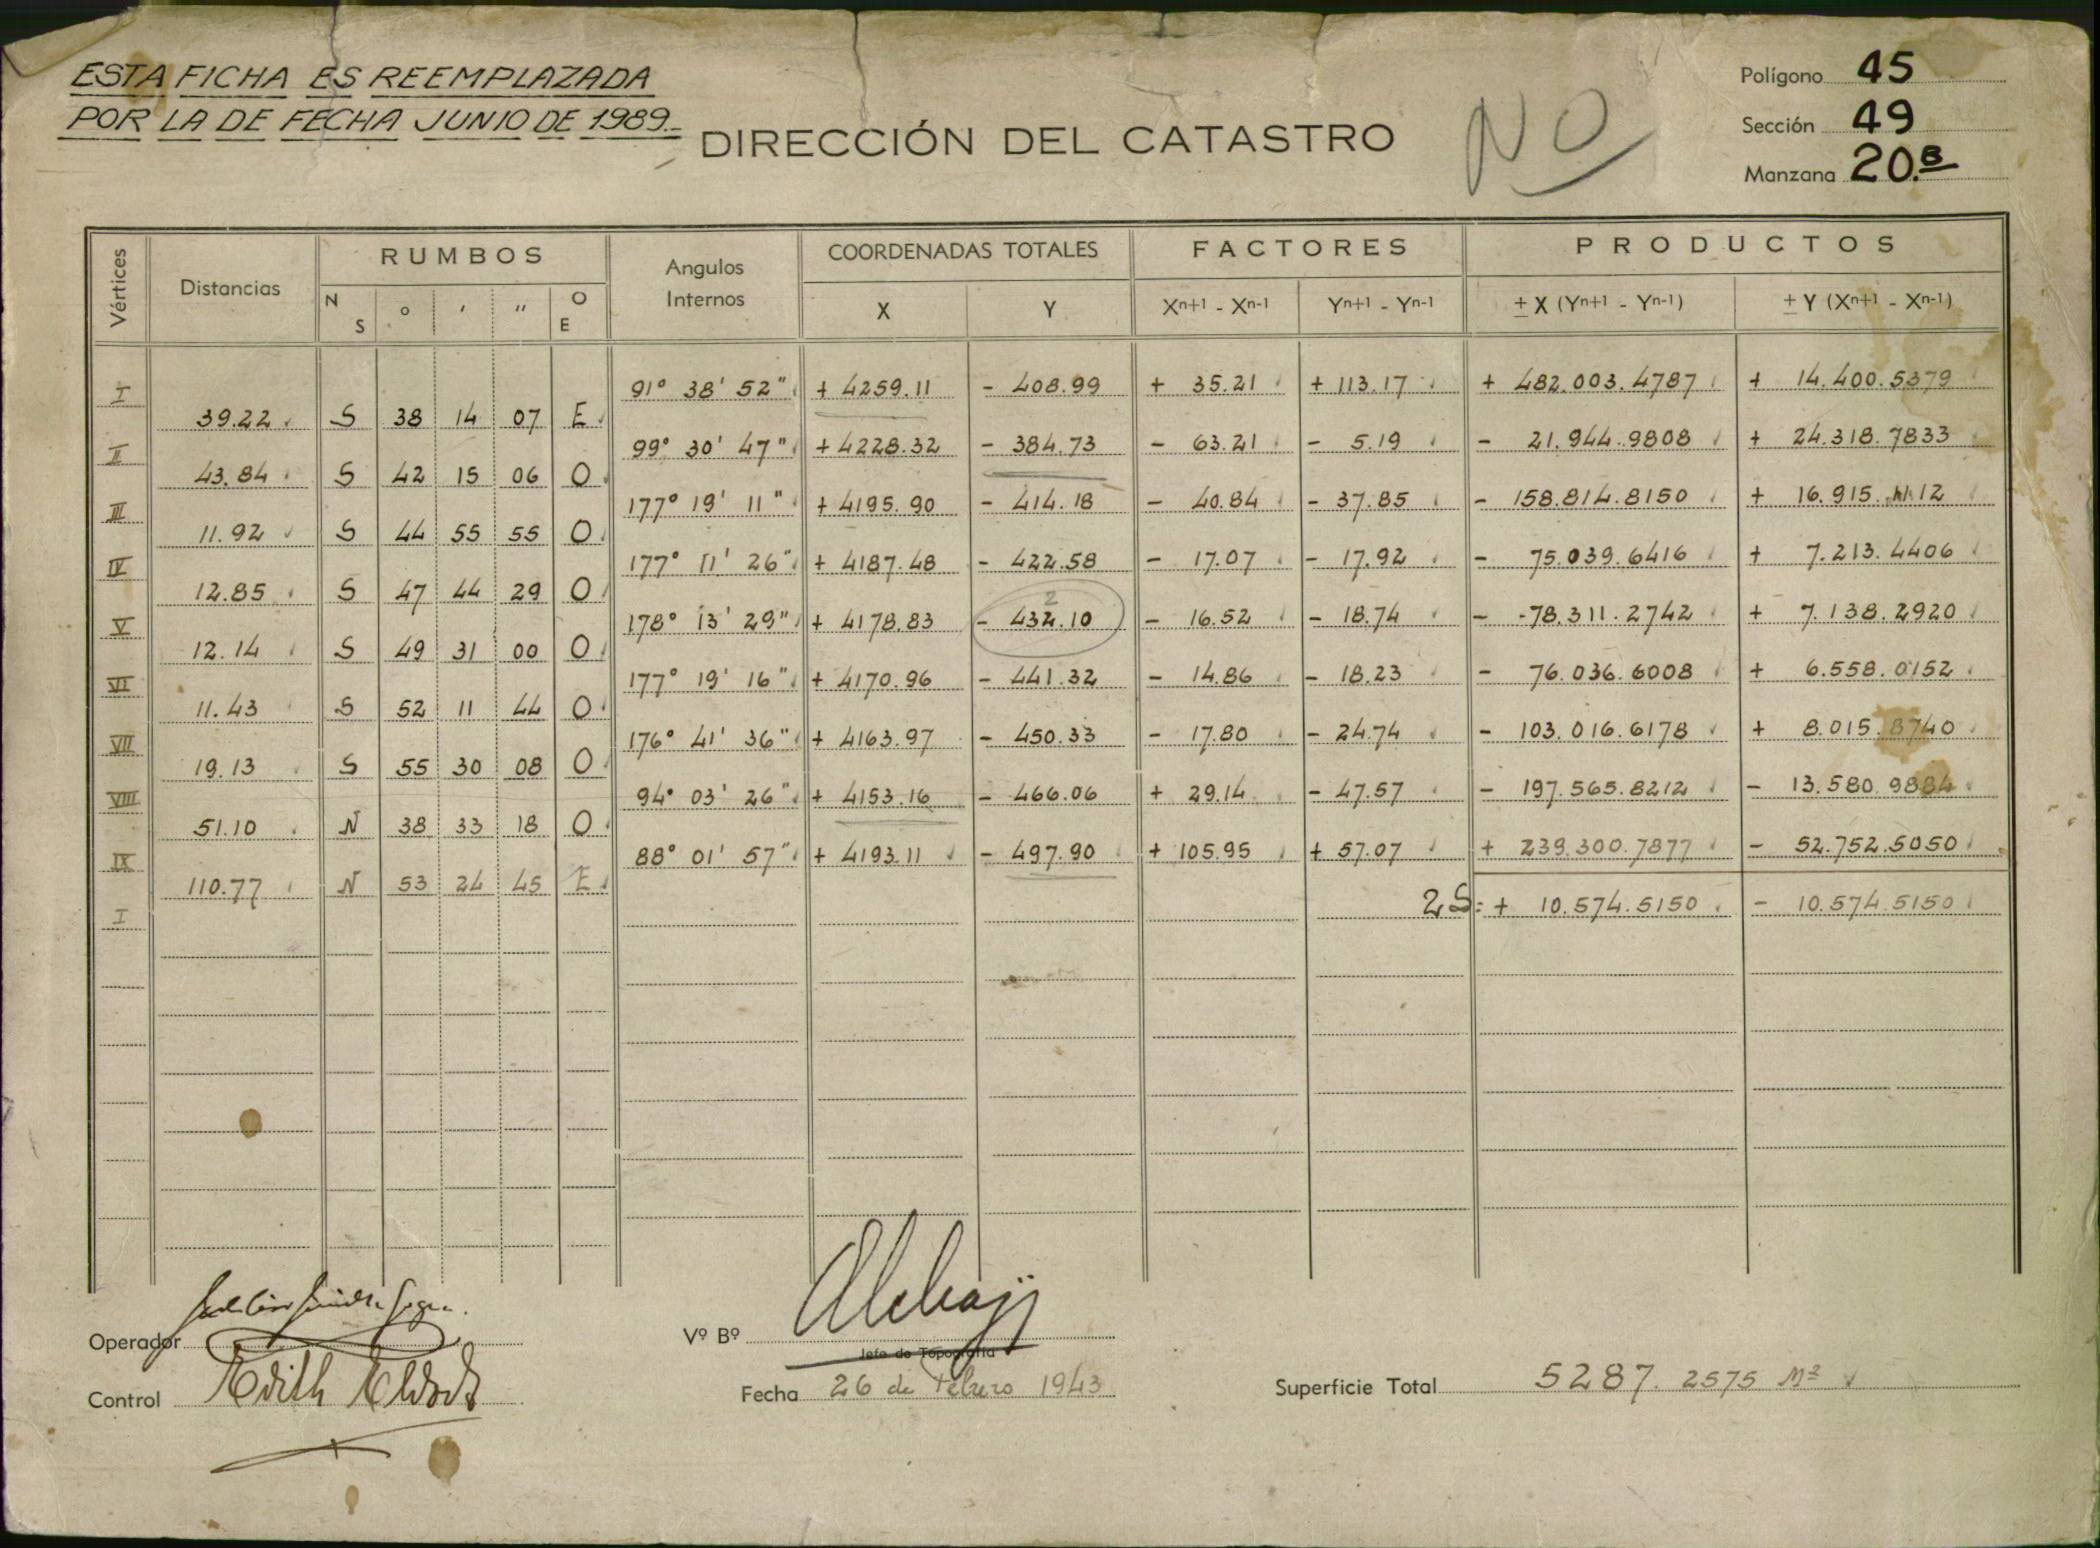 ESTA FICHA ES REEMPLAZADA
POR LA DE FECHA JUNIO DE 1989.-
DIRECCIÓN DEL CATASTRO
NO
Polígono 45
Sección 49
Manzana 20.B
Vértices Distancias RUMBOS Angulos Internos COORDENADAS TOTALES FACTORES PRODUCTOS
N S ° ' " O E X Y Xn+1 - Xn-1 Yn+1 - Yn-1 ± X (Yn+1 - Yn-1) ± Y (Xn+1 - Xn-1)
I 91° 38' 52" + 4259.11 - 408.99 + 35.21 + 113.17 + 482.003.4787 + 14.400.5379
39.22 S 38 14 07 E
II 99° 30' 47" + 4228.32 - 384.73 - 63.21 - 5.19 - 21.944.9808 + 24.318.7833
43.84 S 42 15 06 O
III 177° 19' 11" + 4195.90 - 414.18 - 40.84 - 37.85 - 158.814.8150 + 16.915.1112
11.92 S 44 55 55 O
IV 177° 11' 26" + 4187.48 - 422.58 - 17.07 - 17.92 - 75.039.6416 + 7.213.4406
12.85 S 47 44 29 O
2
V 178° 13' 29" + 4178.83 - 432.10 - 16.52 - 18.74 - 78.311.2742 + 7.138.2920
12.14 S 49 31 00 O
VI 177° 19' 16" + 4170.96 - 441.32 - 14.86 - 18.23 - 76.036.6008 + 6.558.0152
11.43 S 52 11 44 O
VII 176° 41' 36" + 4163.97 - 450.33 - 17.80 - 24.74 - 103.016.6178 + 8.015.8740
19.13 S 55 30 08 O
VIII 94° 03' 26" + 4153.16 - 466.06 + 29.14 - 47.57 - 197.565.8212 - 13.580.9884
51.10 N 38 33 18 O
IX 88° 01' 57" + 4193.11 - 497.90 + 105.95 + 57.07 + 239.300.7877 - 52.752.5050
110.77 N 53 24 45 E
I 2S: + 10.574.5150 - 10.574.5150
Operador
Vº Bº
Jefe de Topografía
Control Edith
Fecha 26 de Febrero 1943
Superficie Total 5287.2575 M²